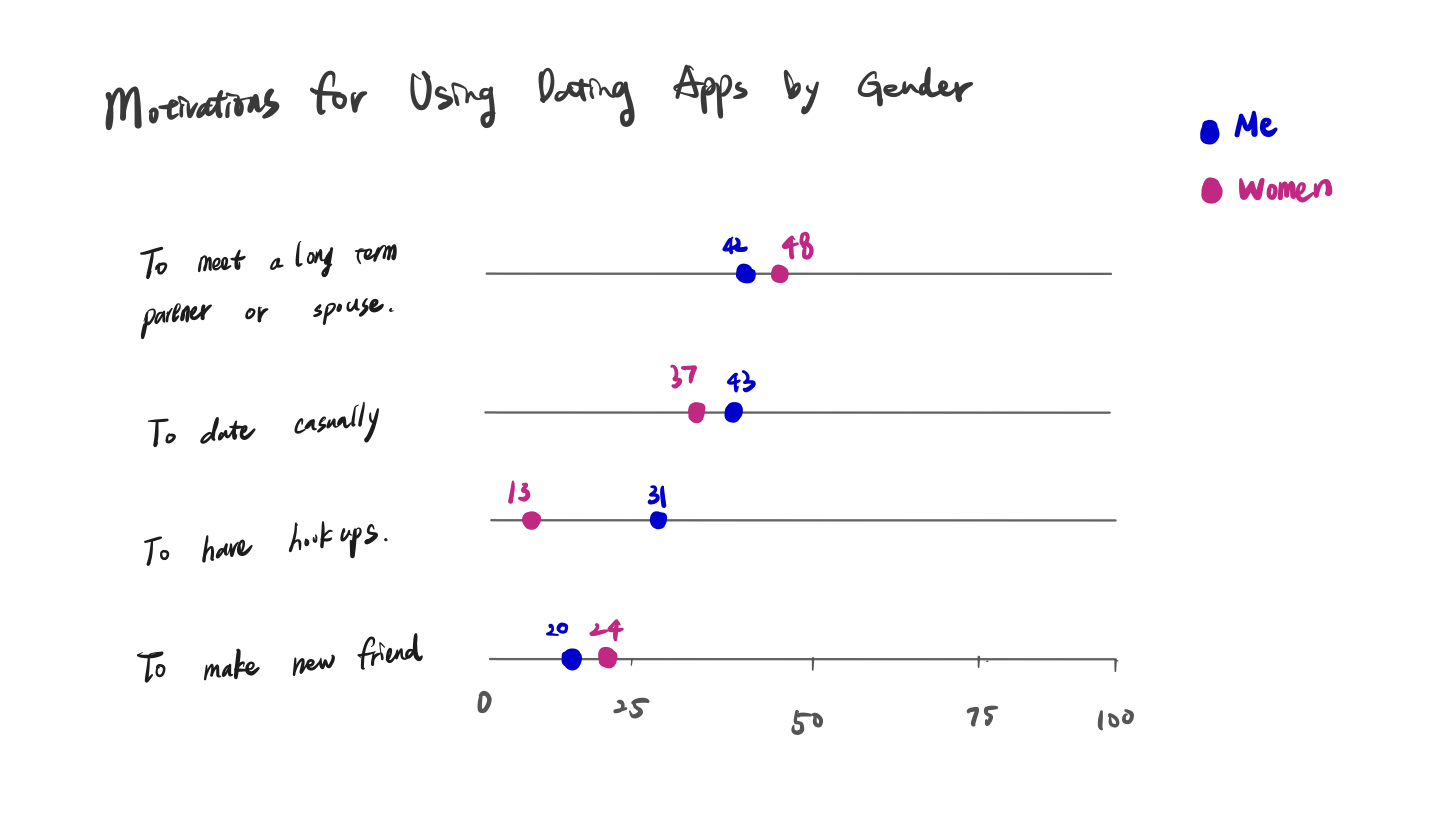 Motivations for Using Dating Apps by Gender
Me
Women
To meet a long term
partner or spouse.
42
48
To date casually
37
43
To have hookups.
13
31
To make new friend
20
24
0
25
50
75
100